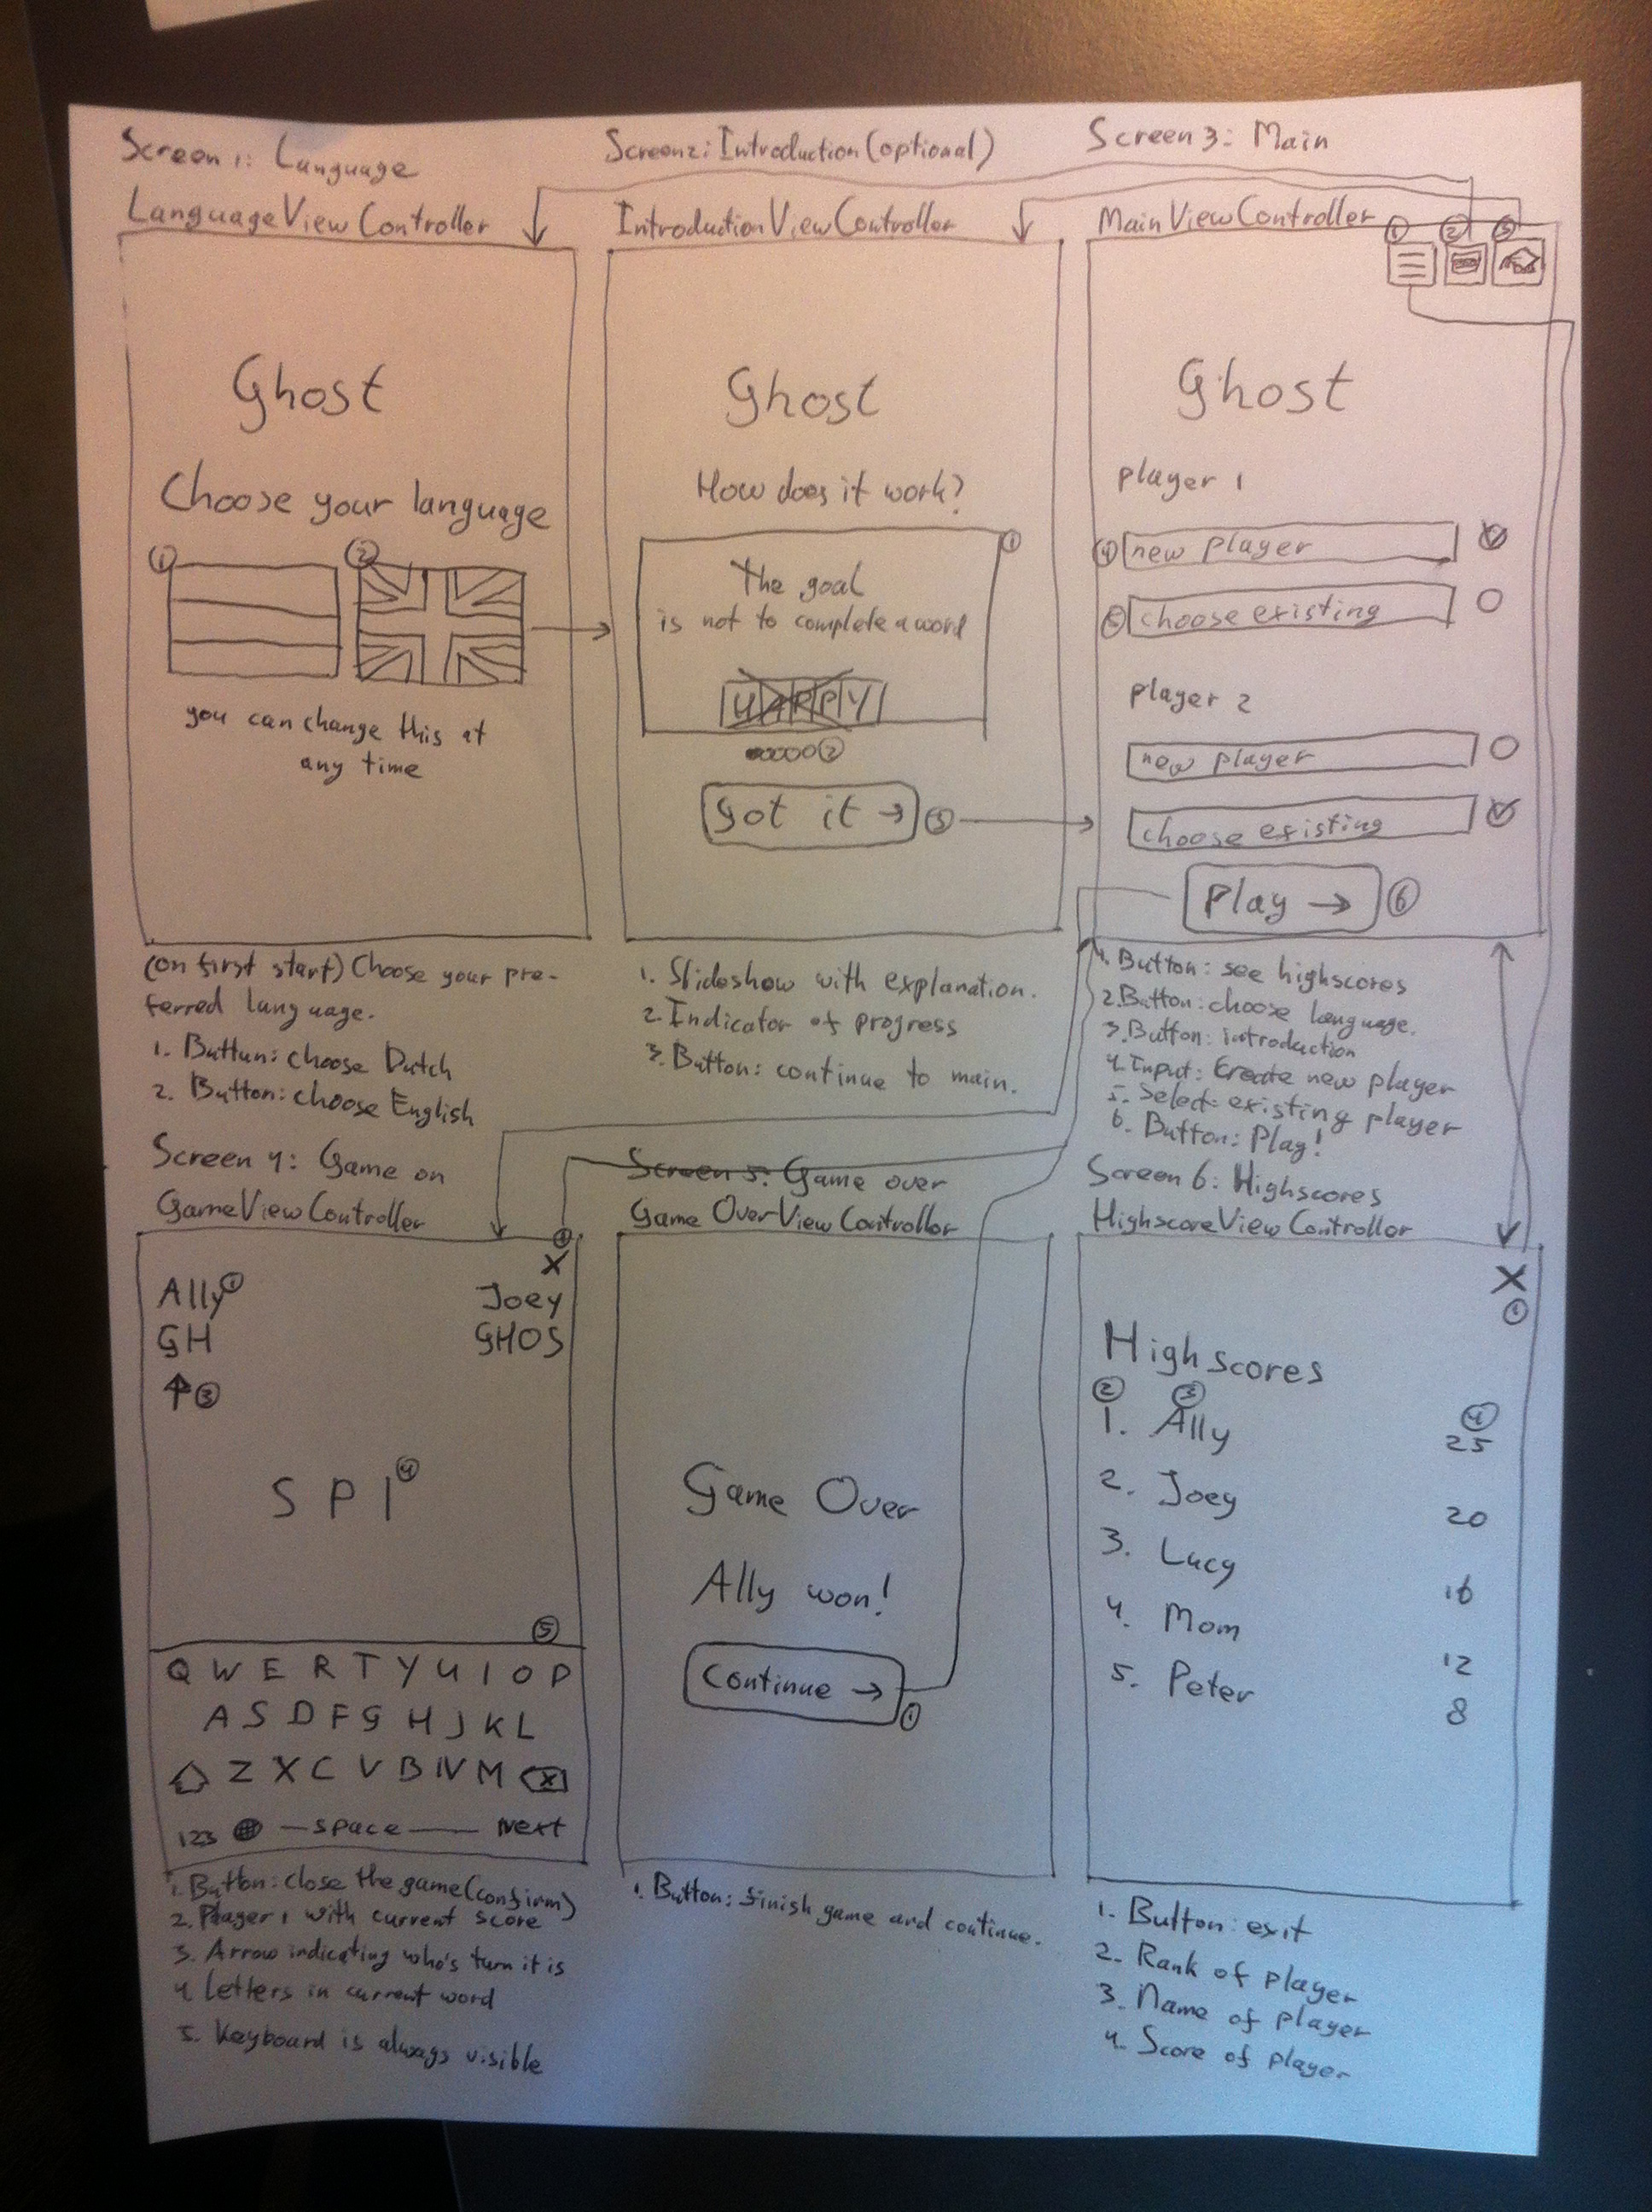 Screen 1: Language
LanguageViewController
Ghost
Choose your language
1
2
you can change this at
any time
(on first start) Choose your pre-
ferred language.
1. Button: choose Dutch
2. Button: choose English
Screen 2: Introduction (optional)
IntroductionViewController
Ghost
How does it work?
1
The goal
is not to complete a word
2
Got it →
3
1. Slideshow with explanation.
2. Indicator of progress
3. Button: continue to main.
Screen 3: Main
MainViewController
1
2
3
Ghost
player 1
4 new player
5 choose existing
player 2
new player
choose existing
Play →
6
1. Button: see highscores
2. Button: choose language.
3. Button: introduction
4. Input: Create new player
5. Select: existing player
6. Button: Play!
Screen 4: Game on
GameViewController
1
X
Ally 1
Joey
GH
GHOS
↑ 3
S P I 4
5
Q W E R T Y U I O P
A S D F G H J K L
Z X C V B N M X
123 space Next
1. Button: close the game (confirm)
2. Player 1 with current score
3. Arrow indicating who's turn it is
4. Letters in current word
5. Keyboard is always visible
Screen 5: Game over
Game OverViewController
Game Over
Ally won!
Continue →
1
1. Button: finish game and continue.
Screen 6: Highscores
HighscoreViewController
X
1
Highscores
2 3 4
1. Ally 25
2. Joey 20
3. Lucy 16
4. Mom 12
5. Peter 8
1. Button: exit
2. Rank of player
3. Name of player
4. Score of player